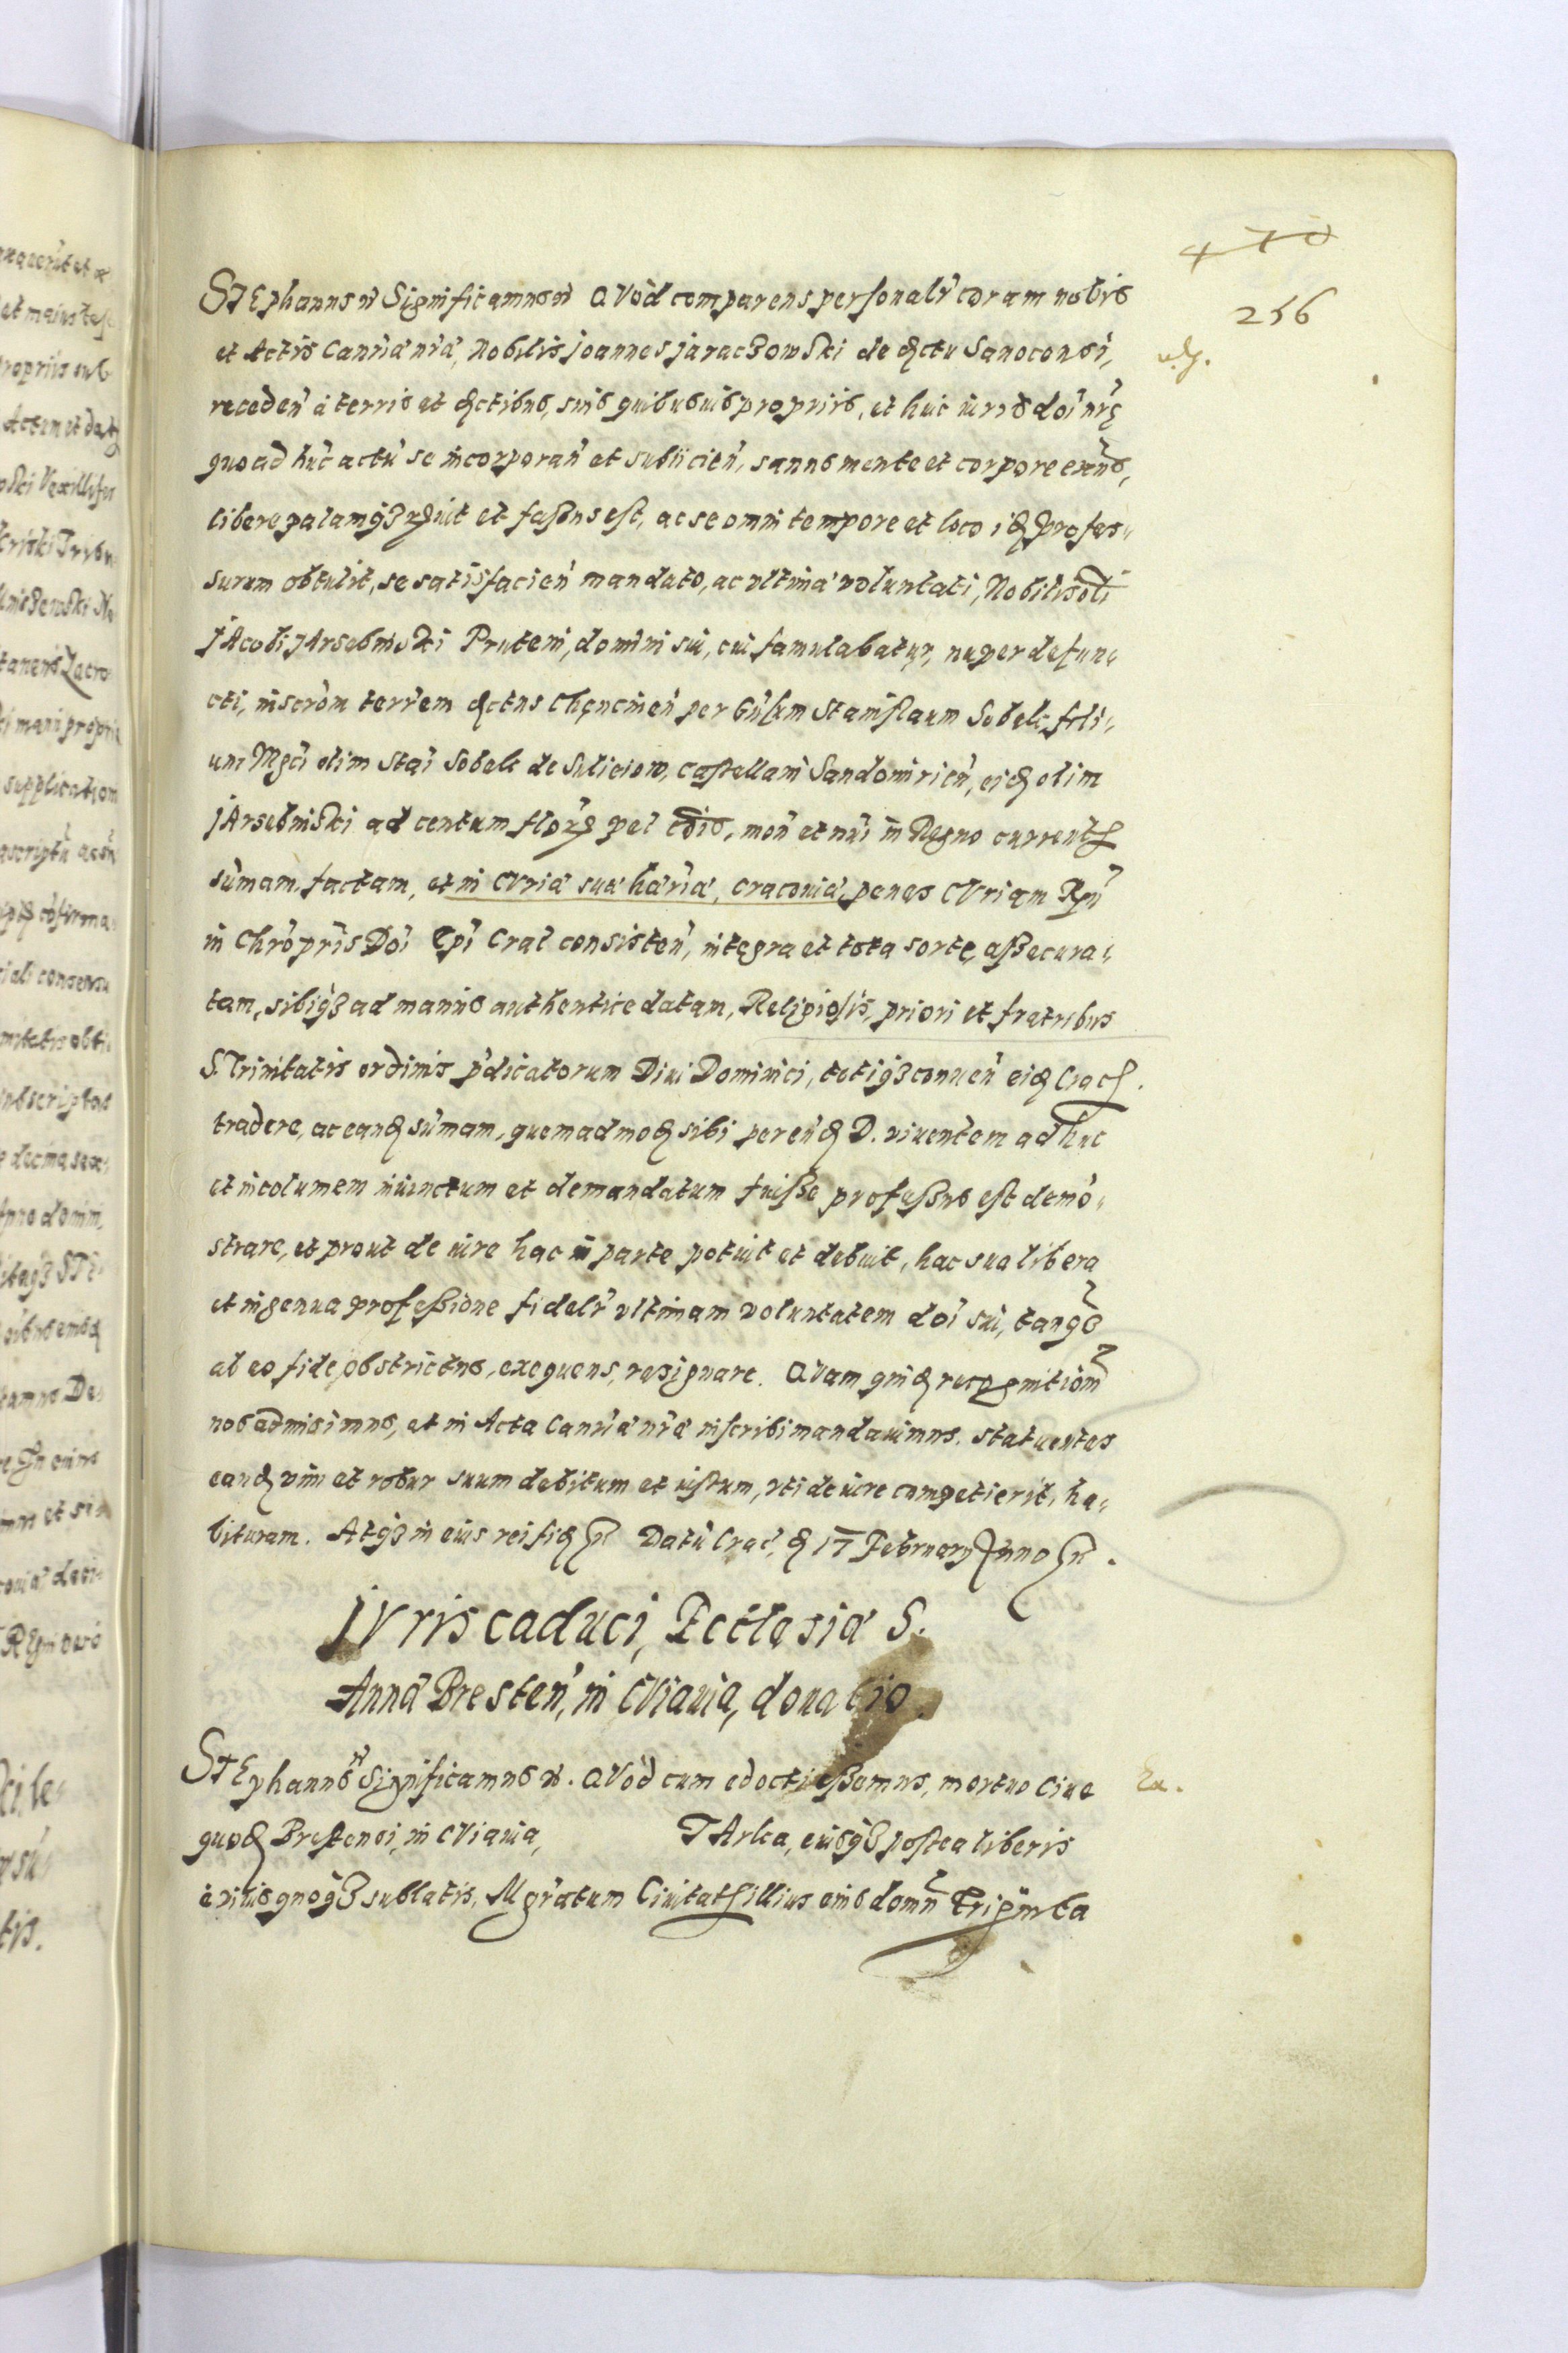 470
256
STEphannus Significamus QVod comparens personalr coram nobis
et Actis Canriæ nræ, Nobilis Joannes Jaraczowski de dctu Sanocensi,
receden à terris et dctibus, suis quibusuis proprijs, et huic iurisdoi nrę
quoad hũc actũ se incorporan et subiicien, sanus mente et corpore exñs,
libere palamq3 et faßus est, ac se omni tempore et loco id profes„
surum obtulit, se satisfacien mandato, ac vltimæ voluntati, Nobilis oli
JAcobi JArsebniski Pruteni, domini sui, cui famulabatur, nuper defun„
cti, inscrom terrem dctus Chęncinen per Gñsum Stanislaum Sobek, fili„
um Mgci olim Stai Sobek de Suliciow, castellani Sandomirien, eid olim
JArsebniski ad centum flor pel cois, mon et nri in Regno currents
sũmam, factam, et in CVria sua hæria, Cracouiæ, penes CVriam Rpñ
in Chro pris Doi Epi Crac consisten, integra et tota sorte, aßecura„
tam, sibiq3 ad manus authentice datam, Religiosis, priori et fratribus
S. Trinitatis ordinis pdicatorum Diui Dominici, totiq3 conuen eid Crac.
tradere, ac eand sũmam, quemadmod sibi per eũd D. viuentem adhuc
et incolumem iniunctum et demandatum fuiße profeßus est demõ„
strare, et prout de iure hac in parte potuit et debuit, hac sua libera
et ingenua profeßione fidelr vltimam voluntatem doi sui, tanq
ab eo fide obstrictus, exequens, resignare. QVam quid recognitiom
nos admisimus, et in Acta Canriæ nræ inscribi mandauimus. statuentes
eand vim et robur suum debitum et iustum, vti de iure competierit, ha„
bituram. Atq3 in eius rei fid Datũ Crac, d 17 February Anno
JVris caduci, Ecclesiæ S.
Annæ Bresten, in CViauia, donatio.
STEphannus Significamus. QVod cum edocti eßemus, mortuo Ciue
quod Brestensi, in CViauia, TArka, eiusq3 postea liberis
è viuis quoq3 sublatis, Mgratum Ciuitats illius eius domn triginta